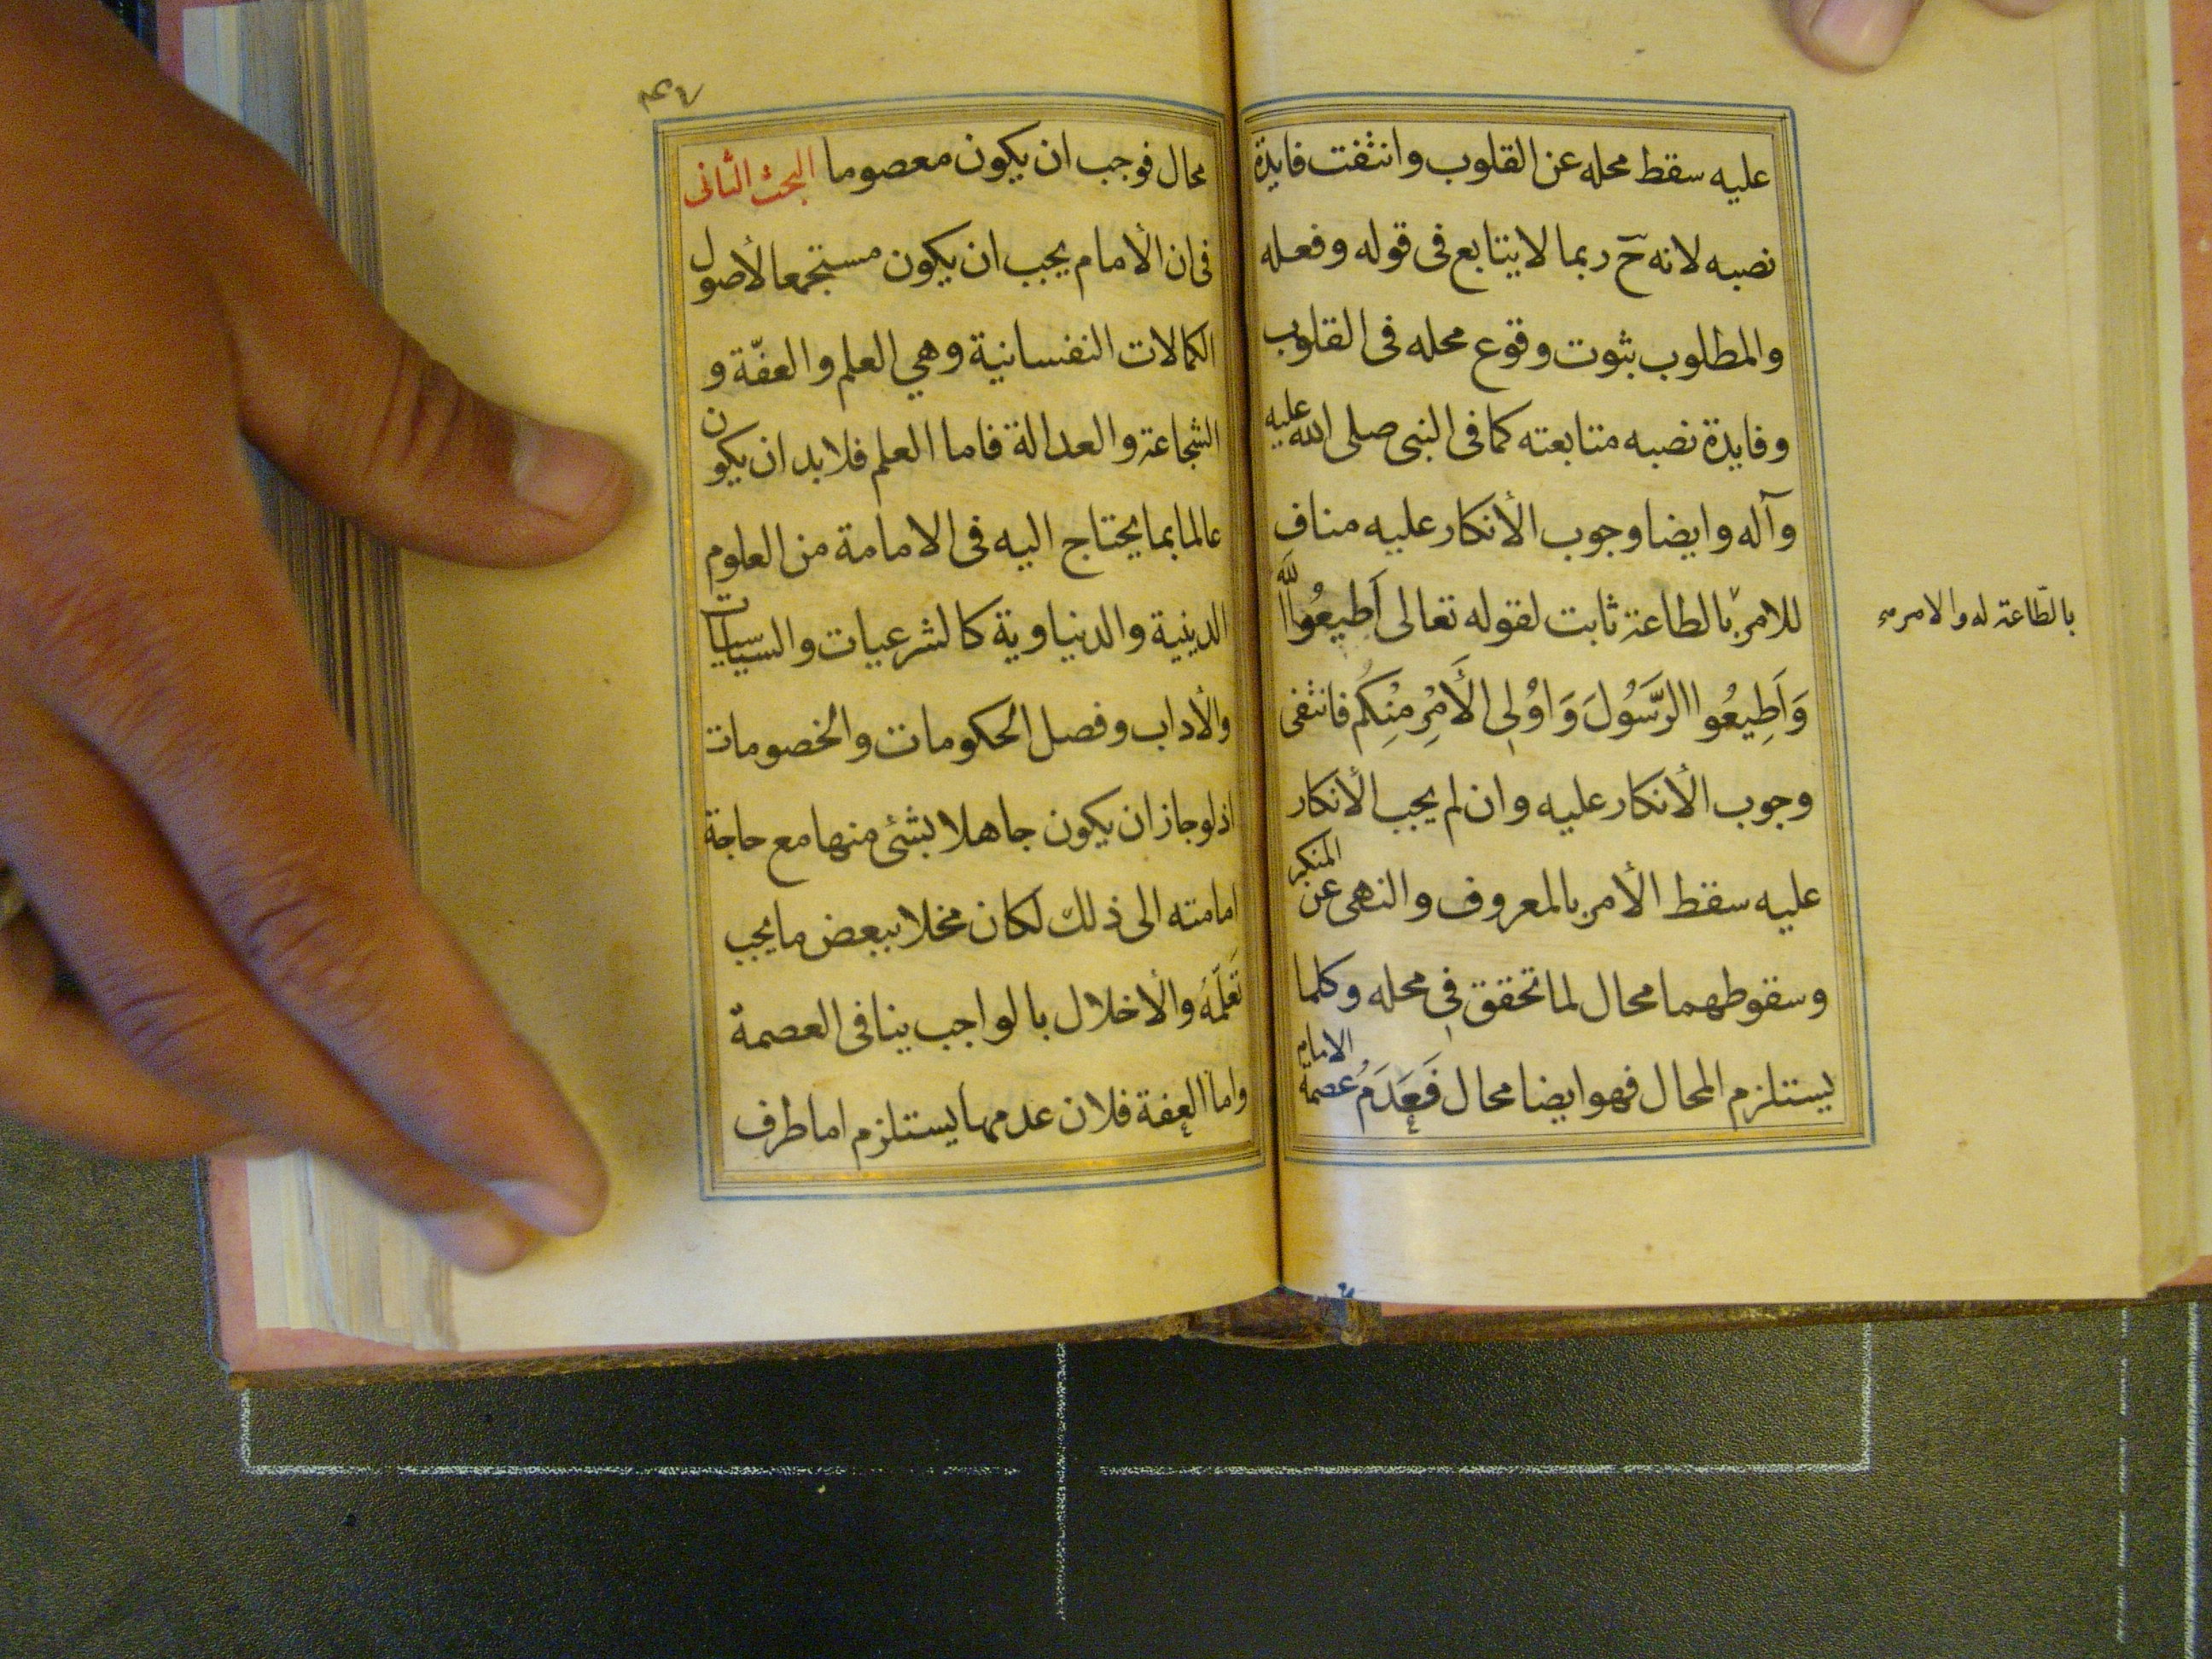 عليه سقط محله عن القلوب وانتفت فايدة
نصبه لانه ح ربما لا يتابع فى قوله وفعله
والمطلوب بثوت وقوع محله فى القلوب
وفايدة نصبه متابعته كما فى النبى صلى الله عليه
وآله وايضا وجوب الأنكار عليه مناف
للامر بالطاعة ثابت لقوله تعالى أَطِيعُوا اللَّه
وَأَطِيعُوا الرَّسُولَ وَاوُلِى الأَمِرْ مِنْكُم فانتفى
وجوب الأنكار عليه وان لم يجب الأنكار
عليه سقط الأمر بالمعروف والنهى عن المنكر
وسقوطهما محال لما تحقق فى محله وكلما
يستلزم المحال فهو ايضا محال فَعَدَمُ عصمة الامام
بالطّاعة له والامر
محال فوجب ان يكون معصوما البحث الثانى
فى ان الأمام يجب ان يكون مستجمعا لأصول
الكمالات النفسانية وهي العلم والعفّة و
الشجاعة والعدالة فاما العلم فلا بد ان يكون
عالما بما يحتاج اليه فى الامامة من العلوم
الدينية والدنياوية كالشرعيات والسياسات
والأداب وفصل الحكومات والخصومات
اذ لو جاز ان يكون جاهلا بشئ منها مع حاجة
امامته الى ذلك لكان مخلا ببعض ما يجب
تَعَلّمُه والأخلال بالواجب ينافى العصمة
واما العفة فلان عدمها يستلزم اما طرف